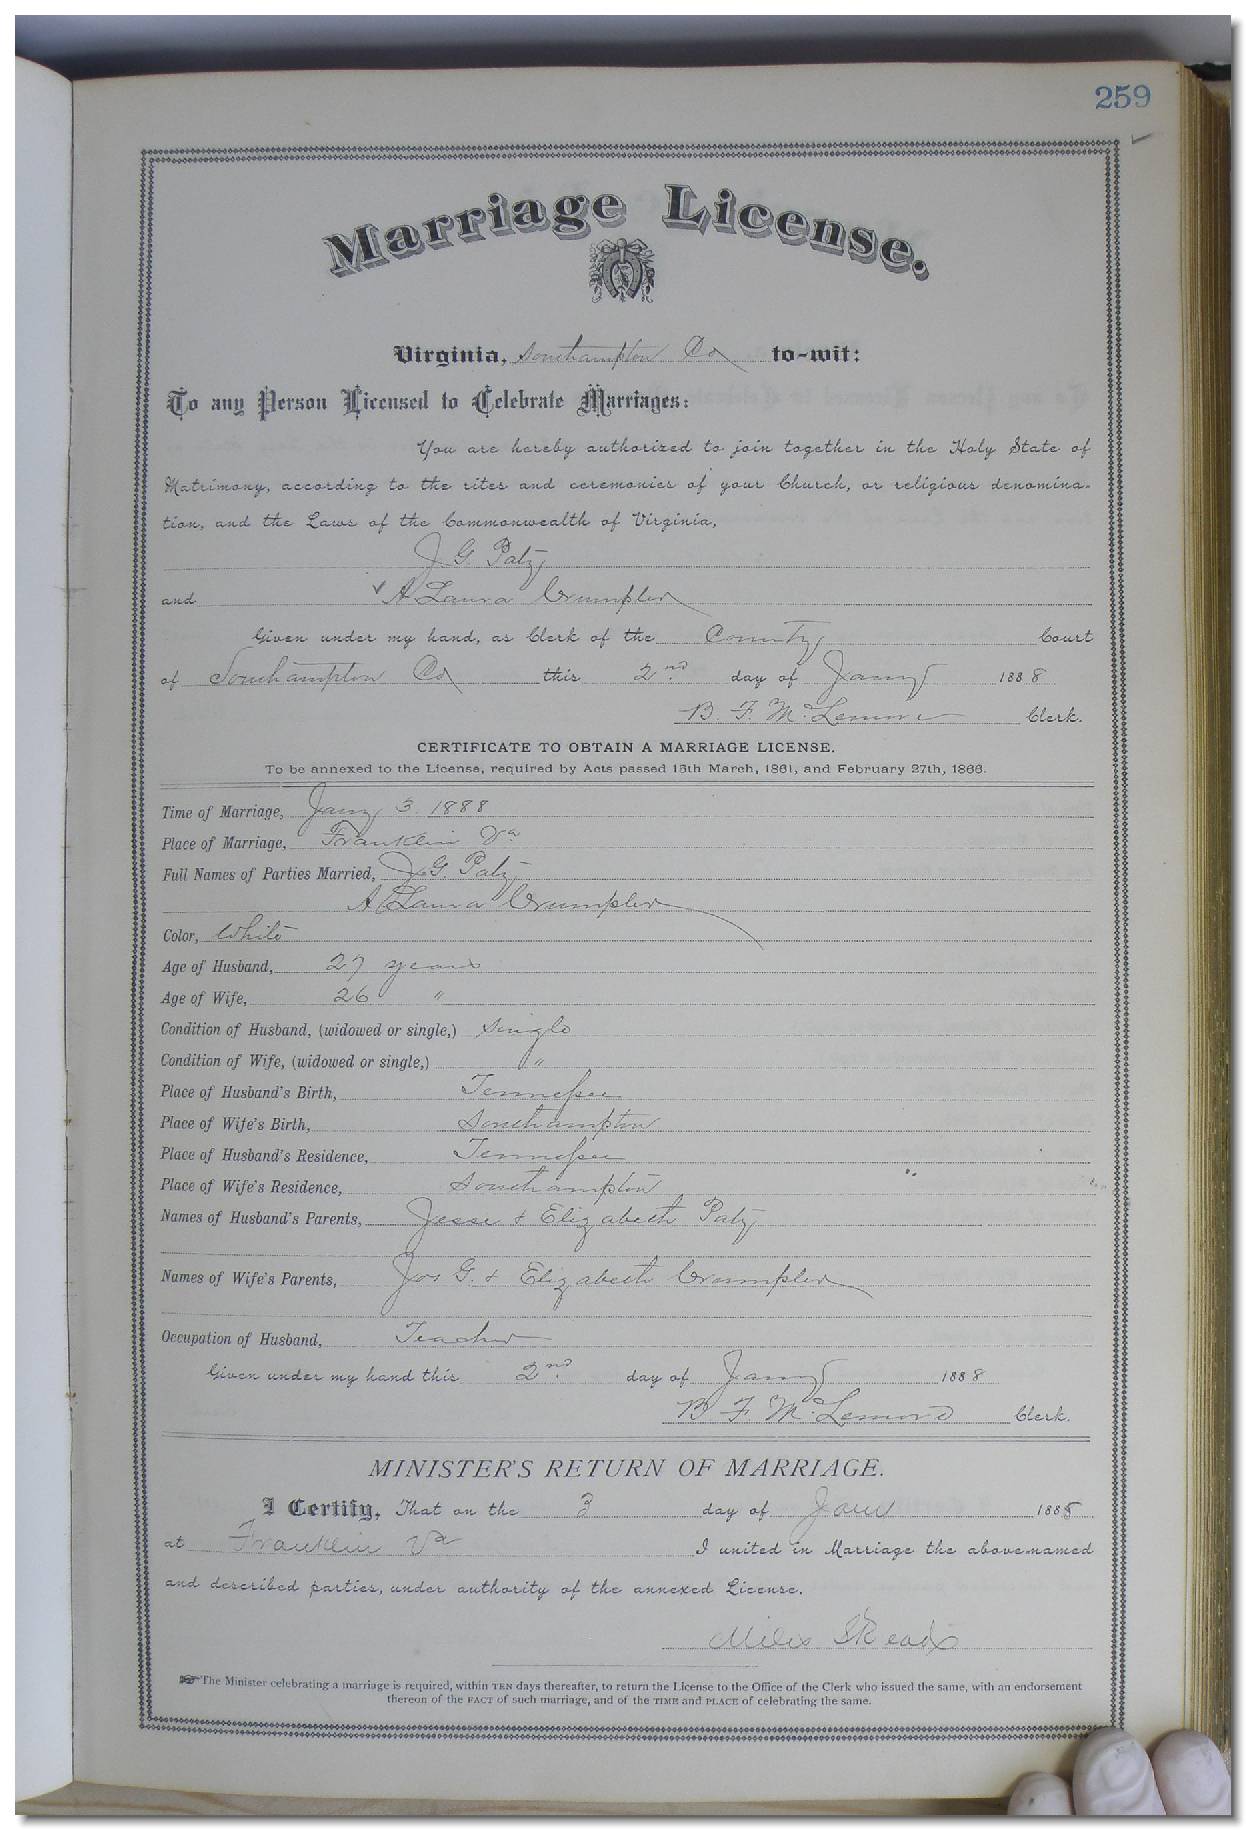 259
Marriage License.
Virginia, Southampton Co to-wit:
To any Person Licensed to Celebrate Marriages:
You are hereby authorized to join together in the Holy State of
Matrimony, according to the rites and ceremonies of your Church, or religious denomina-
tion, and the Laws of the Commonwealth of Virginia,
J. G. Paty
and A Laura Crumpler
Given under my hand, as Clerk of the County Court
of Southampton Co this 2nd day of Jany 1888
B. F. McLemore Clerk.
CERTIFICATE TO OBTAIN A MARRIAGE LICENSE.
To be annexed to the License, required by Acts passed 15th March, 1861, and February 27th, 1866.
Time of Marriage, Jany 3. 1888
Place of Marriage, Franklin Va
Full Names of Parties Married, J. G. Paty
A Laura Crumpler
Color, White
Age of Husband, 27 years
Age of Wife, 26 "
Condition of Husband, (widowed or single,) Single
Condition of Wife, (widowed or single,) "
Place of Husband's Birth, Tennessee
Place of Wife's Birth, Southampton
Place of Husband's Residence, Tennessee
Place of Wife's Residence, Southampton
Names of Husband's Parents, Jesse & Elizabeth Paty
Names of Wife's Parents, Jos G. & Elizabeth Crumpler
Occupation of Husband, Teacher
Given under my hand this 2nd day of Jany 1888
B F McLemore Clerk.
MINISTER'S RETURN OF MARRIAGE.
I Certify, That on the 3 day of Jany 1888
at Franklin Va I united in Marriage the above-named
and described parties, under authority of the annexed License.
Miles
The Minister celebrating a marriage is required, within TEN days thereafter, to return the License to the Office of the Clerk who issued the same, with an endorsement
thereon of the FACT of such marriage, and of the TIME and PLACE of celebrating the same.